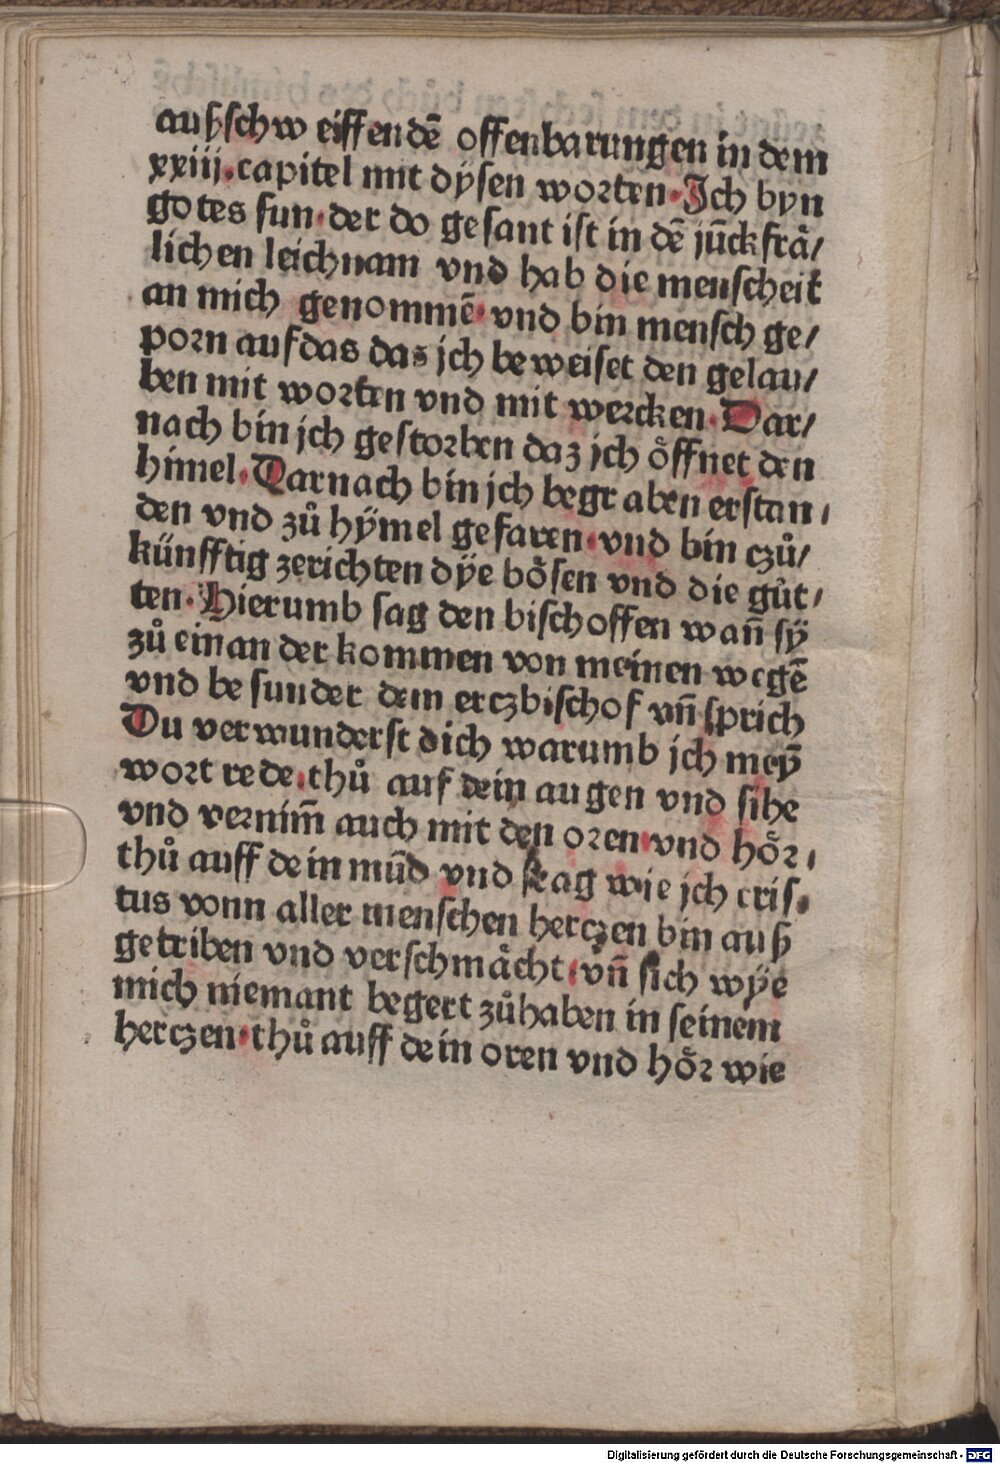 außschweiffendē offenbarungen in dem
xxiij. capitel mit dÿsen worten. Jch byn
gotes sun. der do gesant ist in dē jūckfrå/
lichen leichnam vnd hab die menscheit
an mich genommē. vnd bin mensch ge/
porn auf das daz jch beweiset den gelau/
ben mit worten vnd mit wercken. Dar/
nach bin jch gestorben daz jch öffnet den
himel. Darnach bin jch begraben erstan/
den vnd zů hÿmel gefaren. vnd bin czů/
künfftig zerichten dÿe bösen vnd die gůt/
ten. Hierumb sag den bischoffen wañ sÿ
zů einander kommen von meinen wegē
vnd besunder dem erczbischof vñ sprich
Du verwunderst dich warumb jch meȳ
wort rede. thů auf dein augen vnd sihe
vnd vernim̄ auch mit den oren vnd hör/
thů auff dein mūd vnd frag wie jch cris/
tus vonn aller menschen herczen bin auß
getriben vnd verschmächt. vñ sich wÿe
mich niemant begert zůhaben in seinem
herczen. thů auff dein oren vnd hör wie
Digitalisierung gefördert durch die Deutsche Forschungsgemeinschaft - DFG